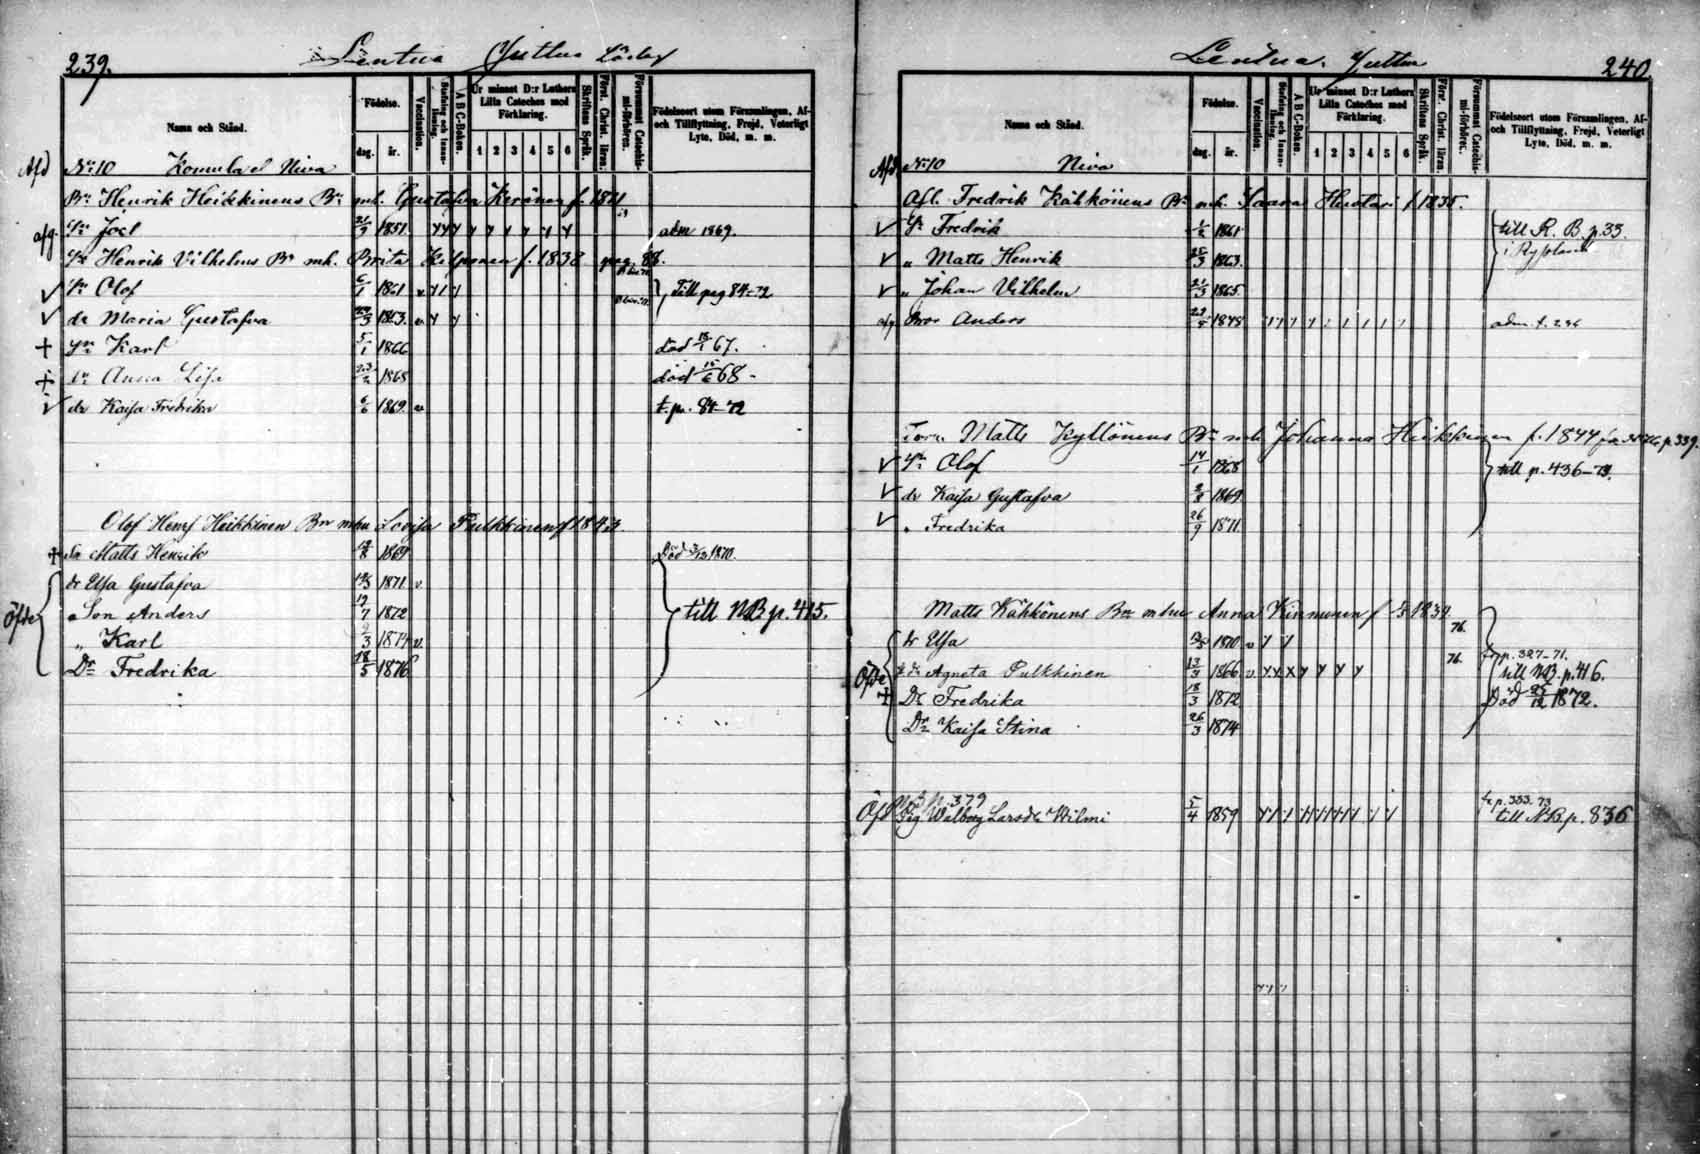 239. Lentua Juttua
Namn och Stånd.
Födelse.
dag. år.
Vaccination.
Stafning och Innanläsning.
A B C-Boken.
Ur minnet D:r Luthers Lilla Cateches med Förklaring.
1 2 3 4 5 6
Skriftens Språk.
Först. Christ. läran.
Försummat Catechismi-förhören.
Födelseort utom Församlingen, Af- och Tillflyttning, Frejd, Veterligt Lyte, Död, m. m.
Afd No 10 Komula el Niva
Bn Henrik Heikkinens Bn mh. Gustafva Keränen f. 1821
afg. Sn Joel 1851 adm 1869.
Sn Henrik Vilhelms Bn mh. Brita Kilponen f. 1838 pag. 88.
Sn Olof 6/1 1861 v Till pag 84-72
dr Maria Gustafva 1863 v
+ Sn Karl 5/1 1866 död 67.
+ dr Anna Lisa 23/2 1868 död 68
dr Kaisa Fredrika 6/6 1869 v t. p. 84-72
Olof Henrs Heikkinen Bn mhu Lovisa Pulkkinen f 1843
+ Sn Matts Henrik 1869 Död 1870.
dr Elsa Gustafva 1871 v.
Öfde Son Anders 19/7 1872 till NB p. 415.
" Karl 1874 v.
Dr Fredrika 18/5 1876
Lentua. Juttua 240
Namn och Stånd.
Födelse.
dag. år.
Vaccination.
Stafning och Innanläsning.
A B C-Boken.
Ur minnet D:r Luthers Lilla Cateches med Förklaring.
1 2 3 4 5 6
Skriftens Språk.
Först. Christ. läran.
Försummat Catechismi-förhörec.
Födelseort utom Församlingen, Af- och Tillflyttning, Frejd, Veterligt Lyte, Död, m. m.
Afd No 10 Niva
Afl. Fredrik Kähkönens Bn mh. Saara Huotari f 1835.
Sn Fredrik 1861 till R. B. p. 33.
" Matts Henrik 1863. i Ryssland
" Johan Vilhelm 1865.
afg Bror Anders 1848
Torp. Matts Kyllönens Bn mh Johanna Heikkinen f. 1844 p. 339.
Sn Olof 14/1 1868 till p. 436-73.
dr Kaisa Gustafva 1869
" Fredrika 26/9 1871
Matts Kähkönens Bn mhu Anna Kinnunen f 1839
76.
dr Elsa 1870 v
76. fr p. 327-71.
Öfde Agneta Pulkkinen 13/3 1866 v till NB. p. 416.
+ Dr Fredrika 18/3 1872 Död 25/12 1872.
Dr Kaisa Stina 26/3 1874
p. 379
fr p. 333. 73
Pig Walborg Larsdr Wilmi 5/4 1859 till N.B p. 836